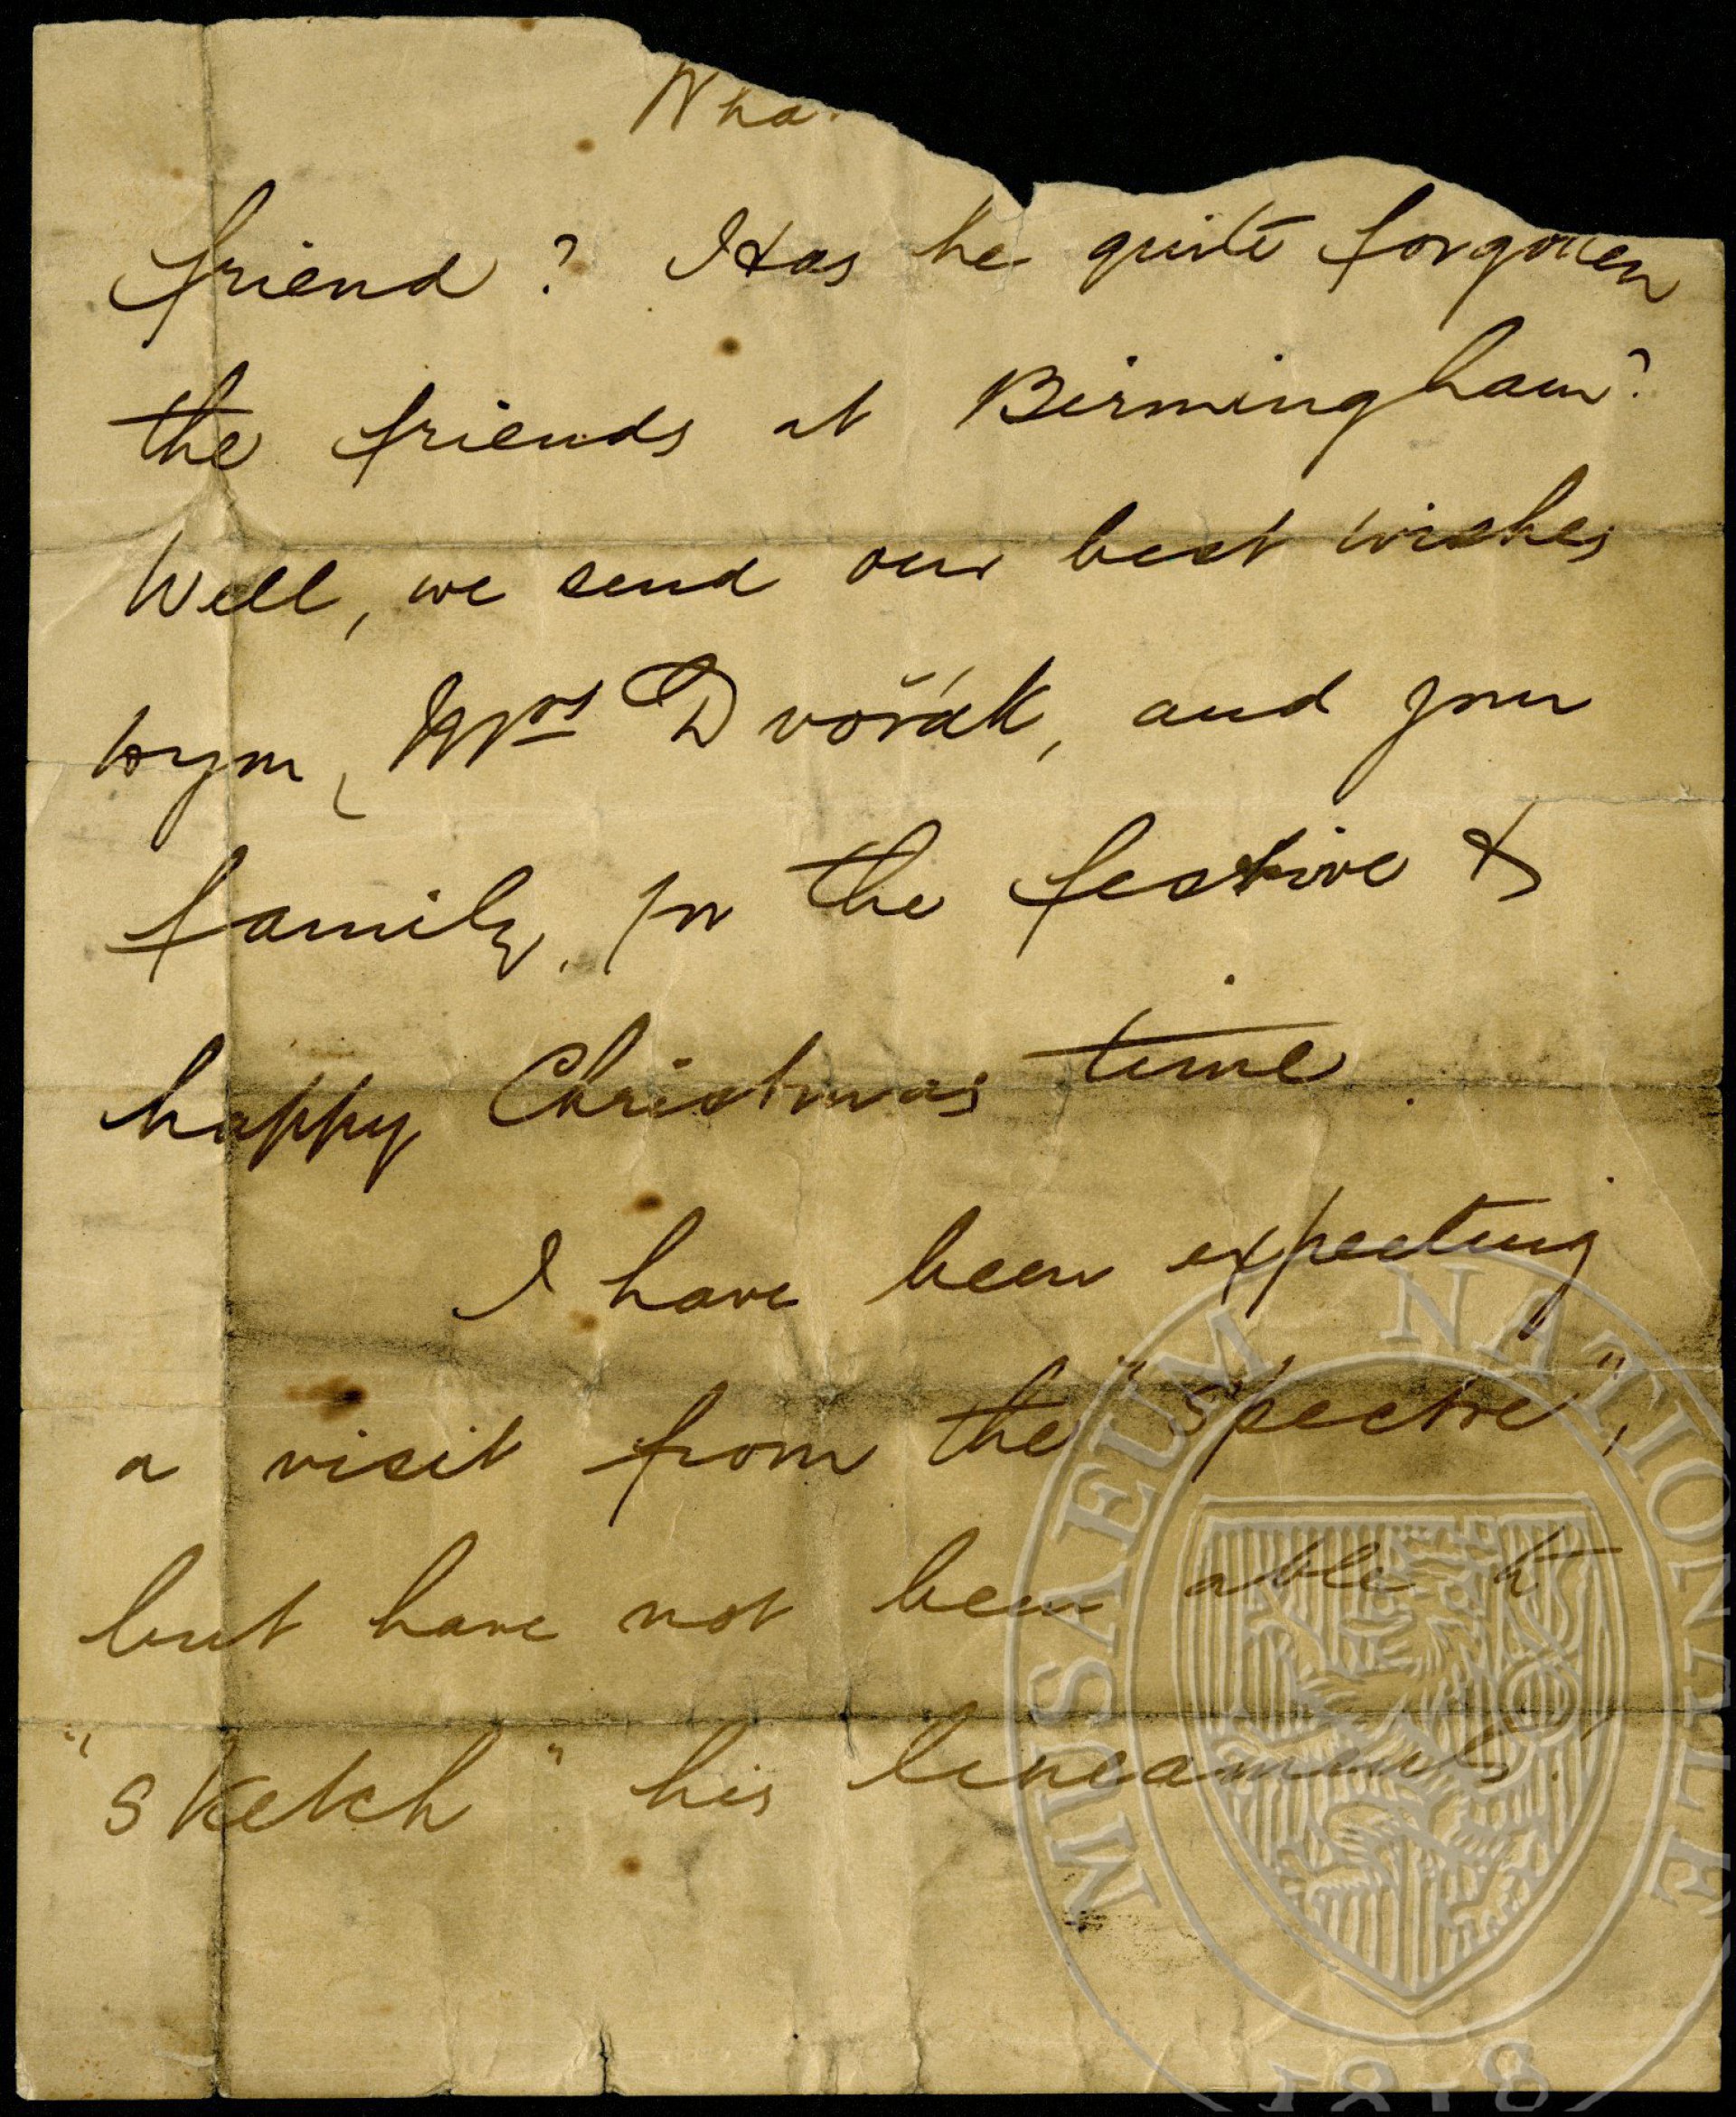 Wha
friend? Has he quite forgotten
the friends at Birmingham?
Well, we send our best wishes
to you, Mrs Dvořák, and your
family, for the festive &
happy Christmas time.
I have been expecting
a visit from the "Spectre",
but have not been able to
"sketch" his lineaments!
MUSAEUM NATIONALE
1818